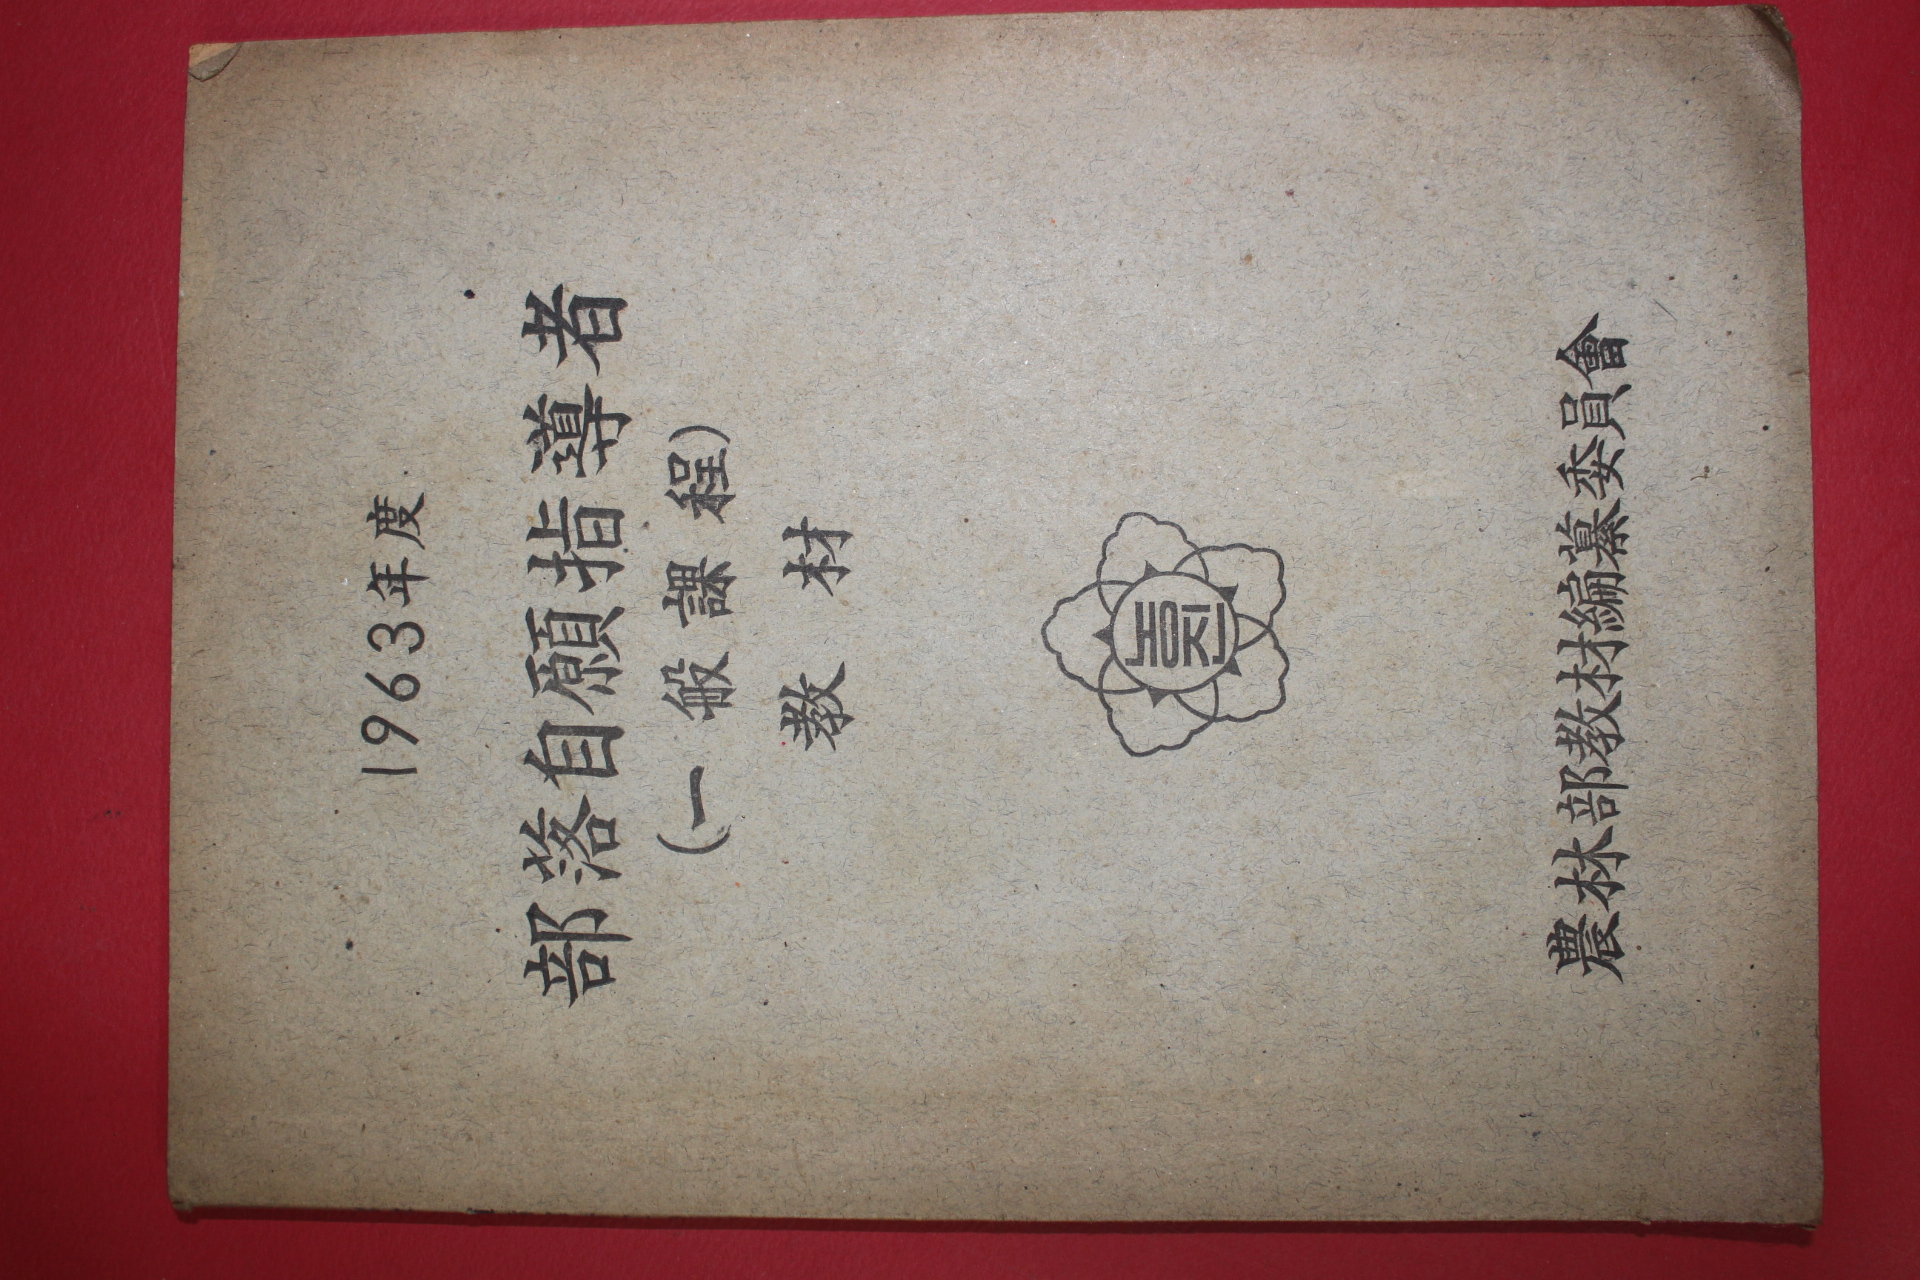 1963年度
部落自願指導者
(一般課程)
教材
농진
農林部教材編纂委員會